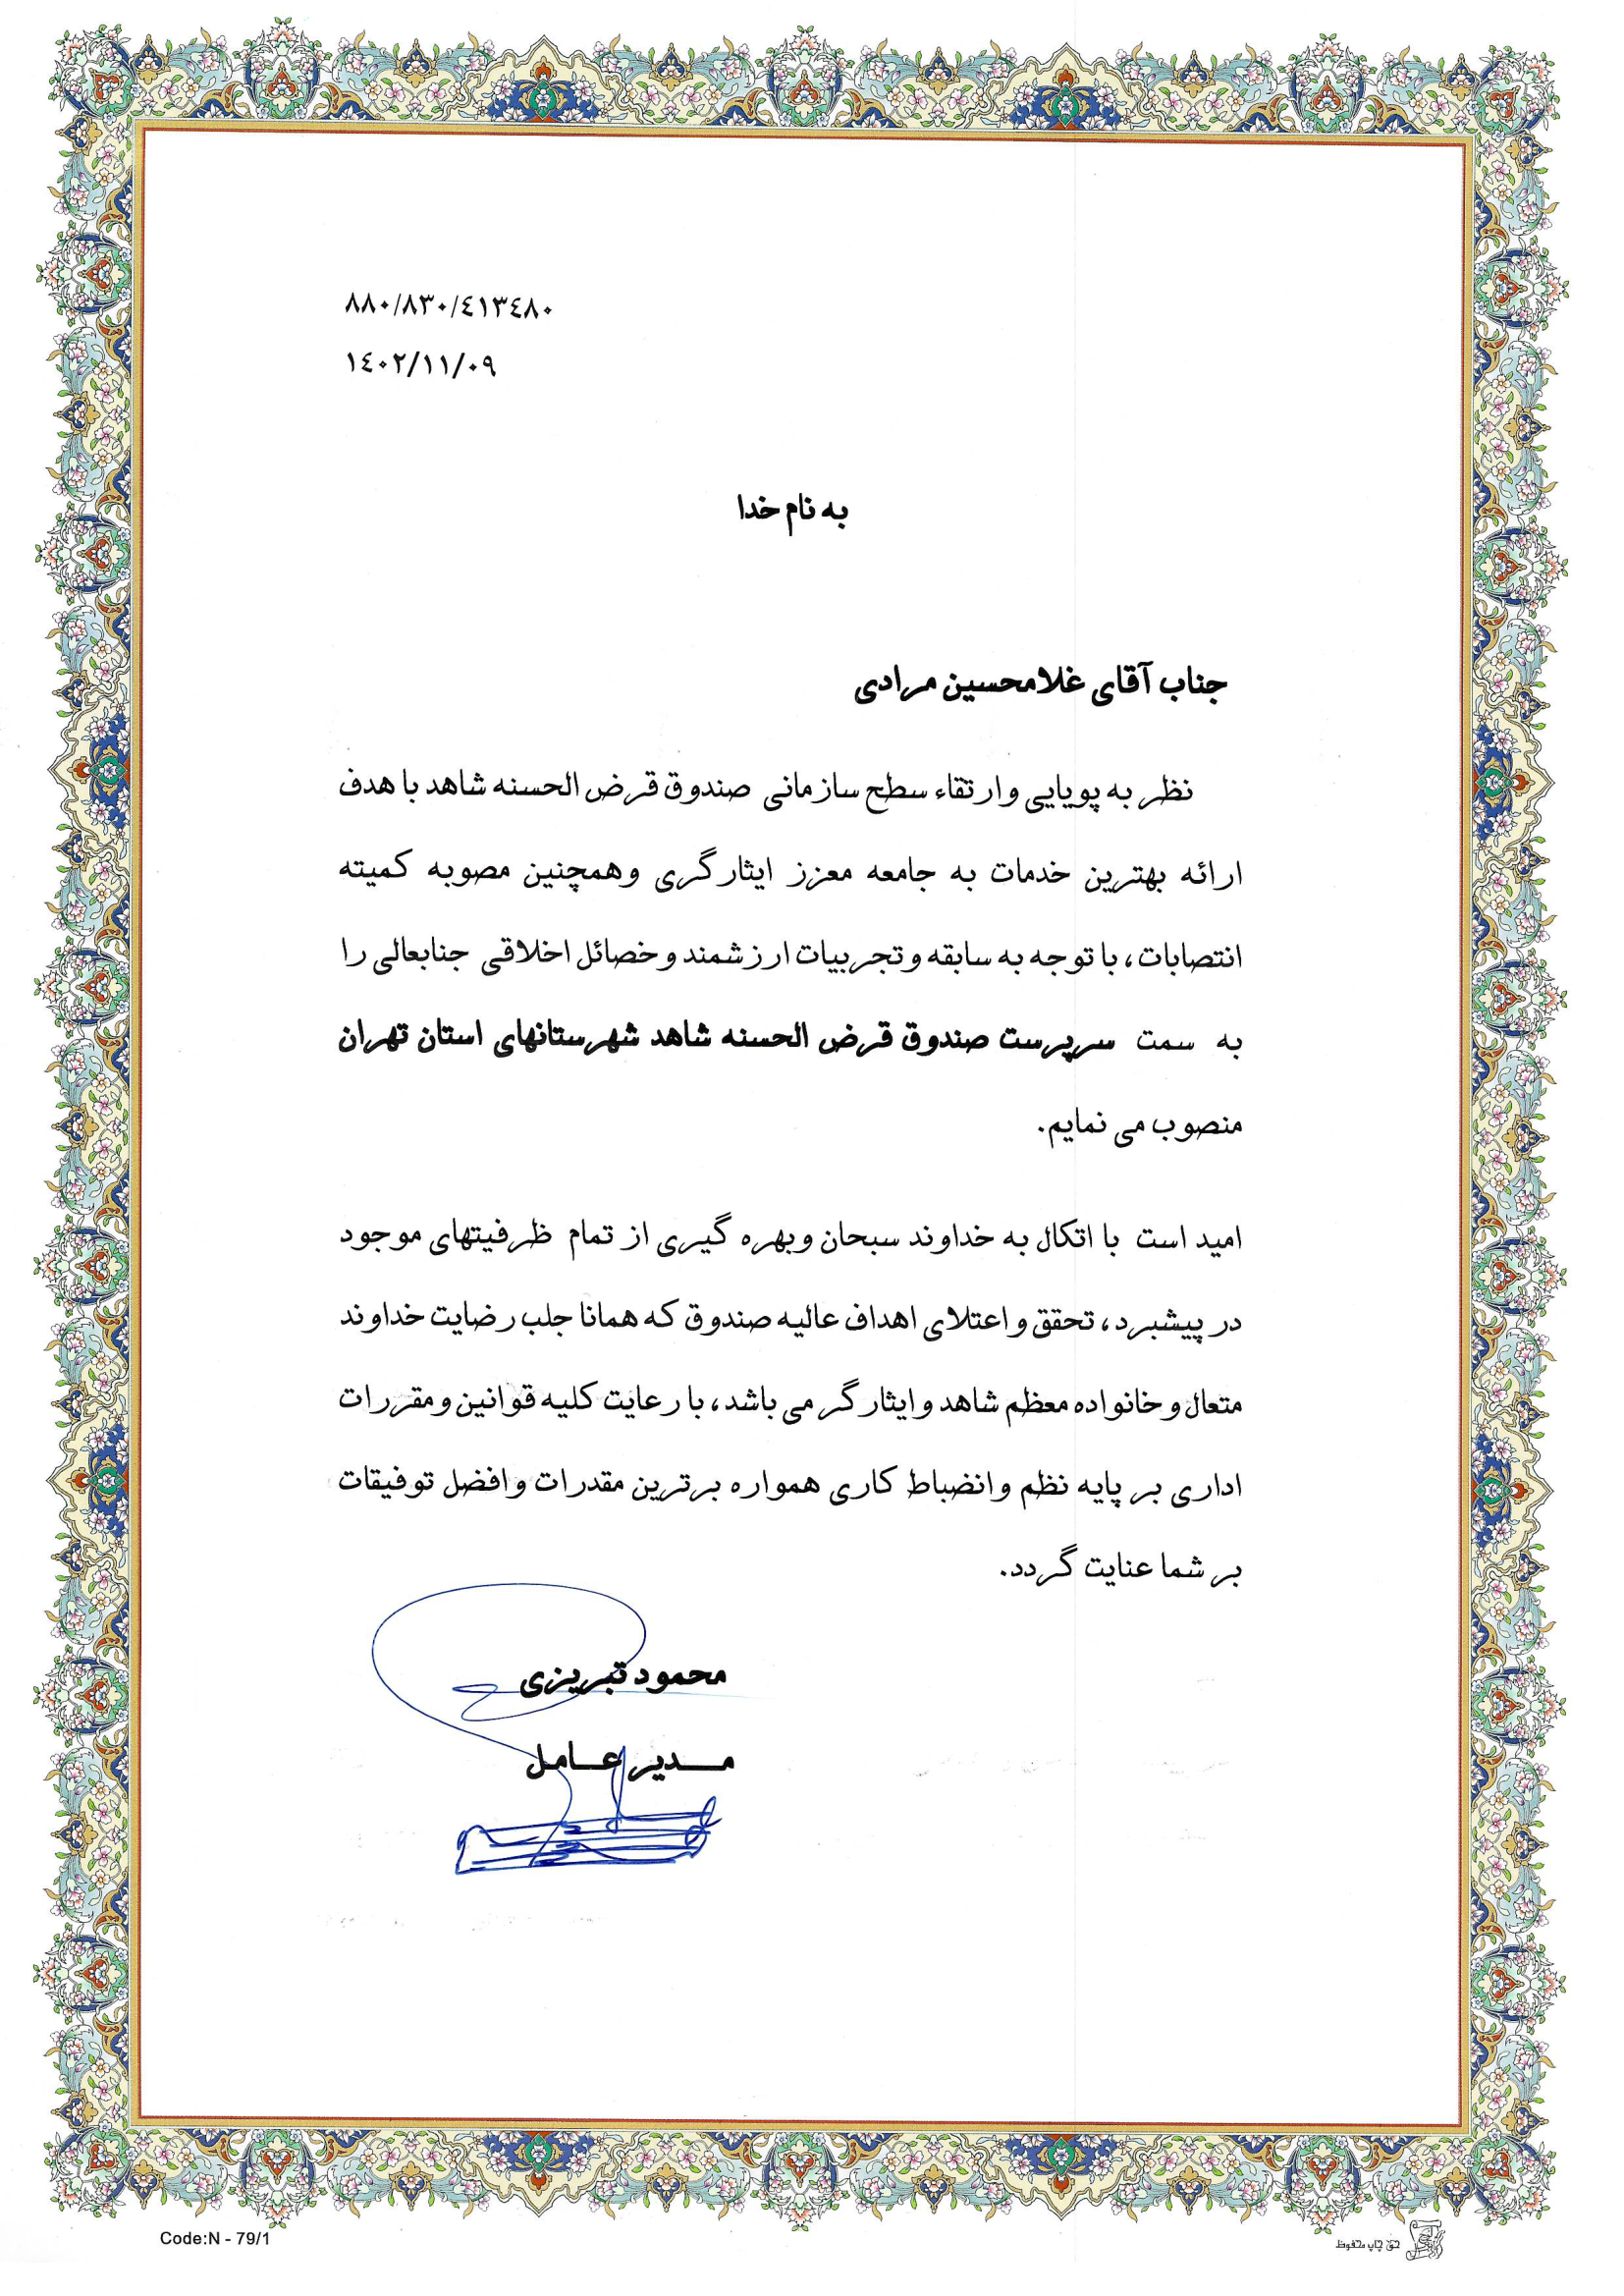 ٨٨٠/٨٣٠/٤١٣٤٨٠
١٤٠٢/١١/٠٩
به نام خدا
جناب آقای غلامحسین مرادی
نظر به پویایی و ارتقاء سطح سازمانی صندوق قرض الحسنه شاهد با هدف
ارائه بهترین خدمات به جامعه معزز ایثارگری وهمچنین مصوبه کمیته
انتصابات، با توجه به سابقه و تجربیات ارزشمند و خصائل اخلاقی جنابعالی را
به سمت سرپرست صندوق قرض الحسنه شاهد شهرستانهای استان تهران
منصوب می نمایم.
امید است با اتکال به خداوند سبحان وبهره گیری از تمام ظرفیتهای موجود
در پیشبرد، تحقق و اعتلای اهداف عالیه صندوق که همانا جلب رضایت خداوند
متعال و خانواده معظم شاهد و ایثارگر می باشد، با رعایت کلیه قوانین و مقررات
اداری بر پایه نظم وانضباط کاری همواره برترین مقدرات و افضل توفیقات
بر شما عنایت گردد.
محمود تبریزی
مدیر عامل
Code:N - 79/1
حق چاپ محفوظ